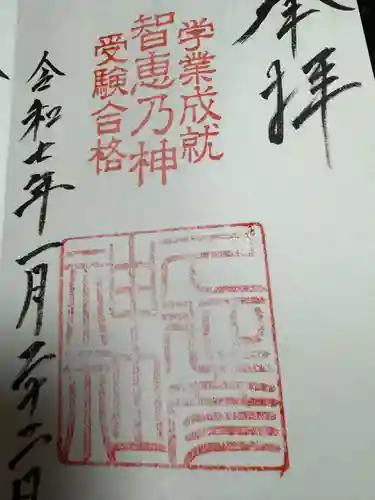 奉拝
学業成就
智恵乃神
受験合格
令和七年一月二十二日